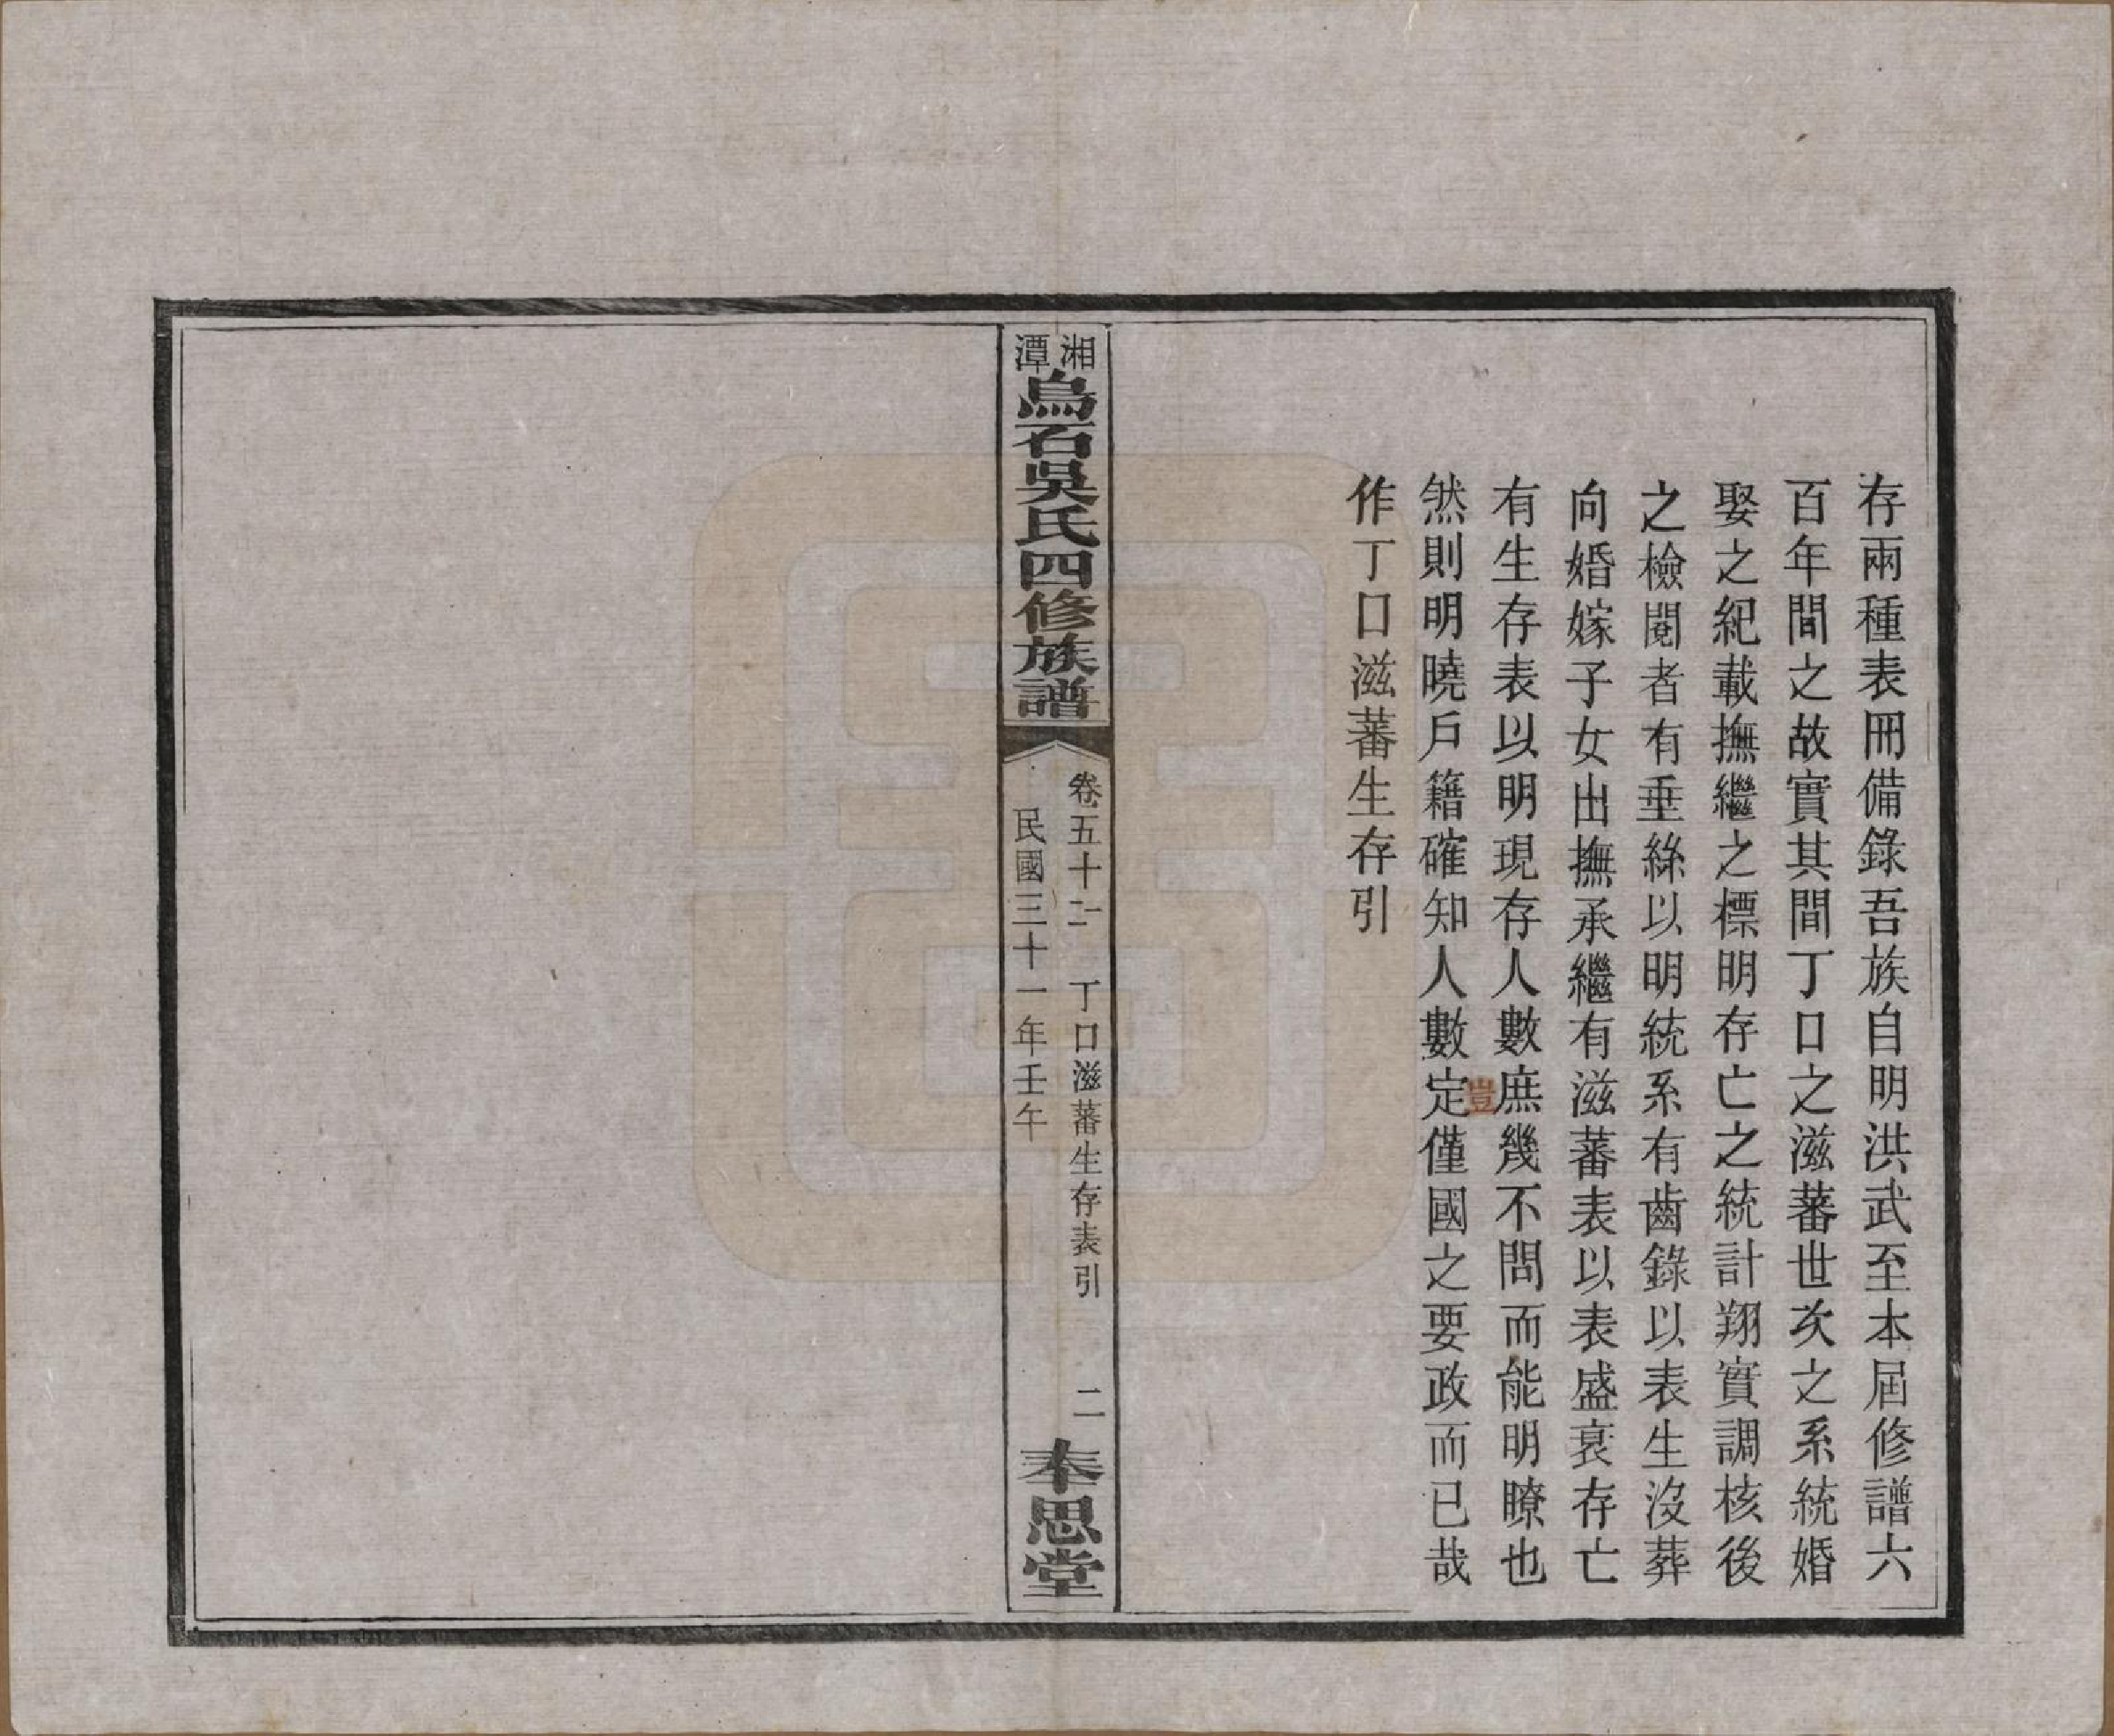 存兩種表冊備錄吾族自明洪武至本屆修譜六
百年間之故實其間丁口之滋蕃世次之系統婚
娶之紀載撫繼之標明存亡之統計翔實調核後
之檢閱者有垂絲以明統系有齒錄以表生沒葬
向婚嫁子女出撫承繼有滋蕃表以表盛衰存亡
有生存表以明現存人數庶幾不問而能明瞭也
然則明曉戶籍確知人數定僅國之要政而已哉
豈
作丁口滋蕃生存引
湘潭烏石吳氏四修族譜
卷五十二 丁口滋蕃生存表引 二
民國三十一年壬午
奉思堂